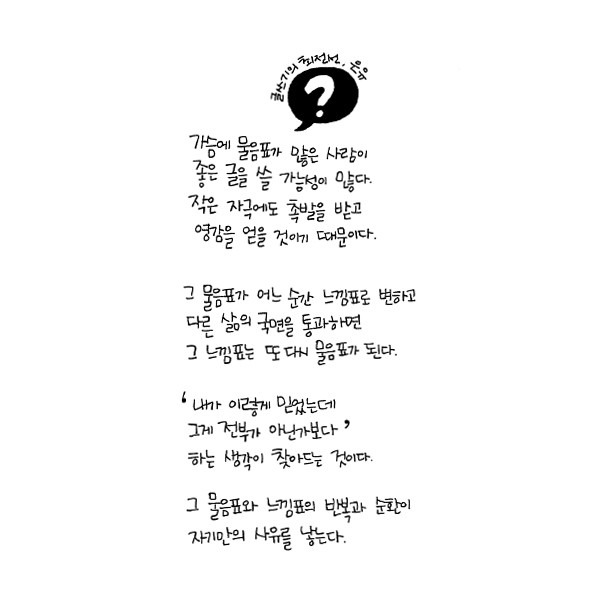 글쓰기의 최전선, 은유
?
가슴에 물음표가 많은 사람이
좋은 글을 쓸 가능성이 많다.
작은 자극에도 촉발을 받고
영감을 얻을 것이기 때문이다.
그 물음표가 어느 순간 느낌표로 변하고
다른 삶의 국면을 통과하면
그 느낌표는 또 다시 물음표가 된다.
‘내가 이렇게 믿었는데
그게 전부가 아닌가보다’
하는 생각이 찾아드는 것이다.
그 물음표와 느낌표의 반복과 순환이
자기만의 사유를 낳는다.